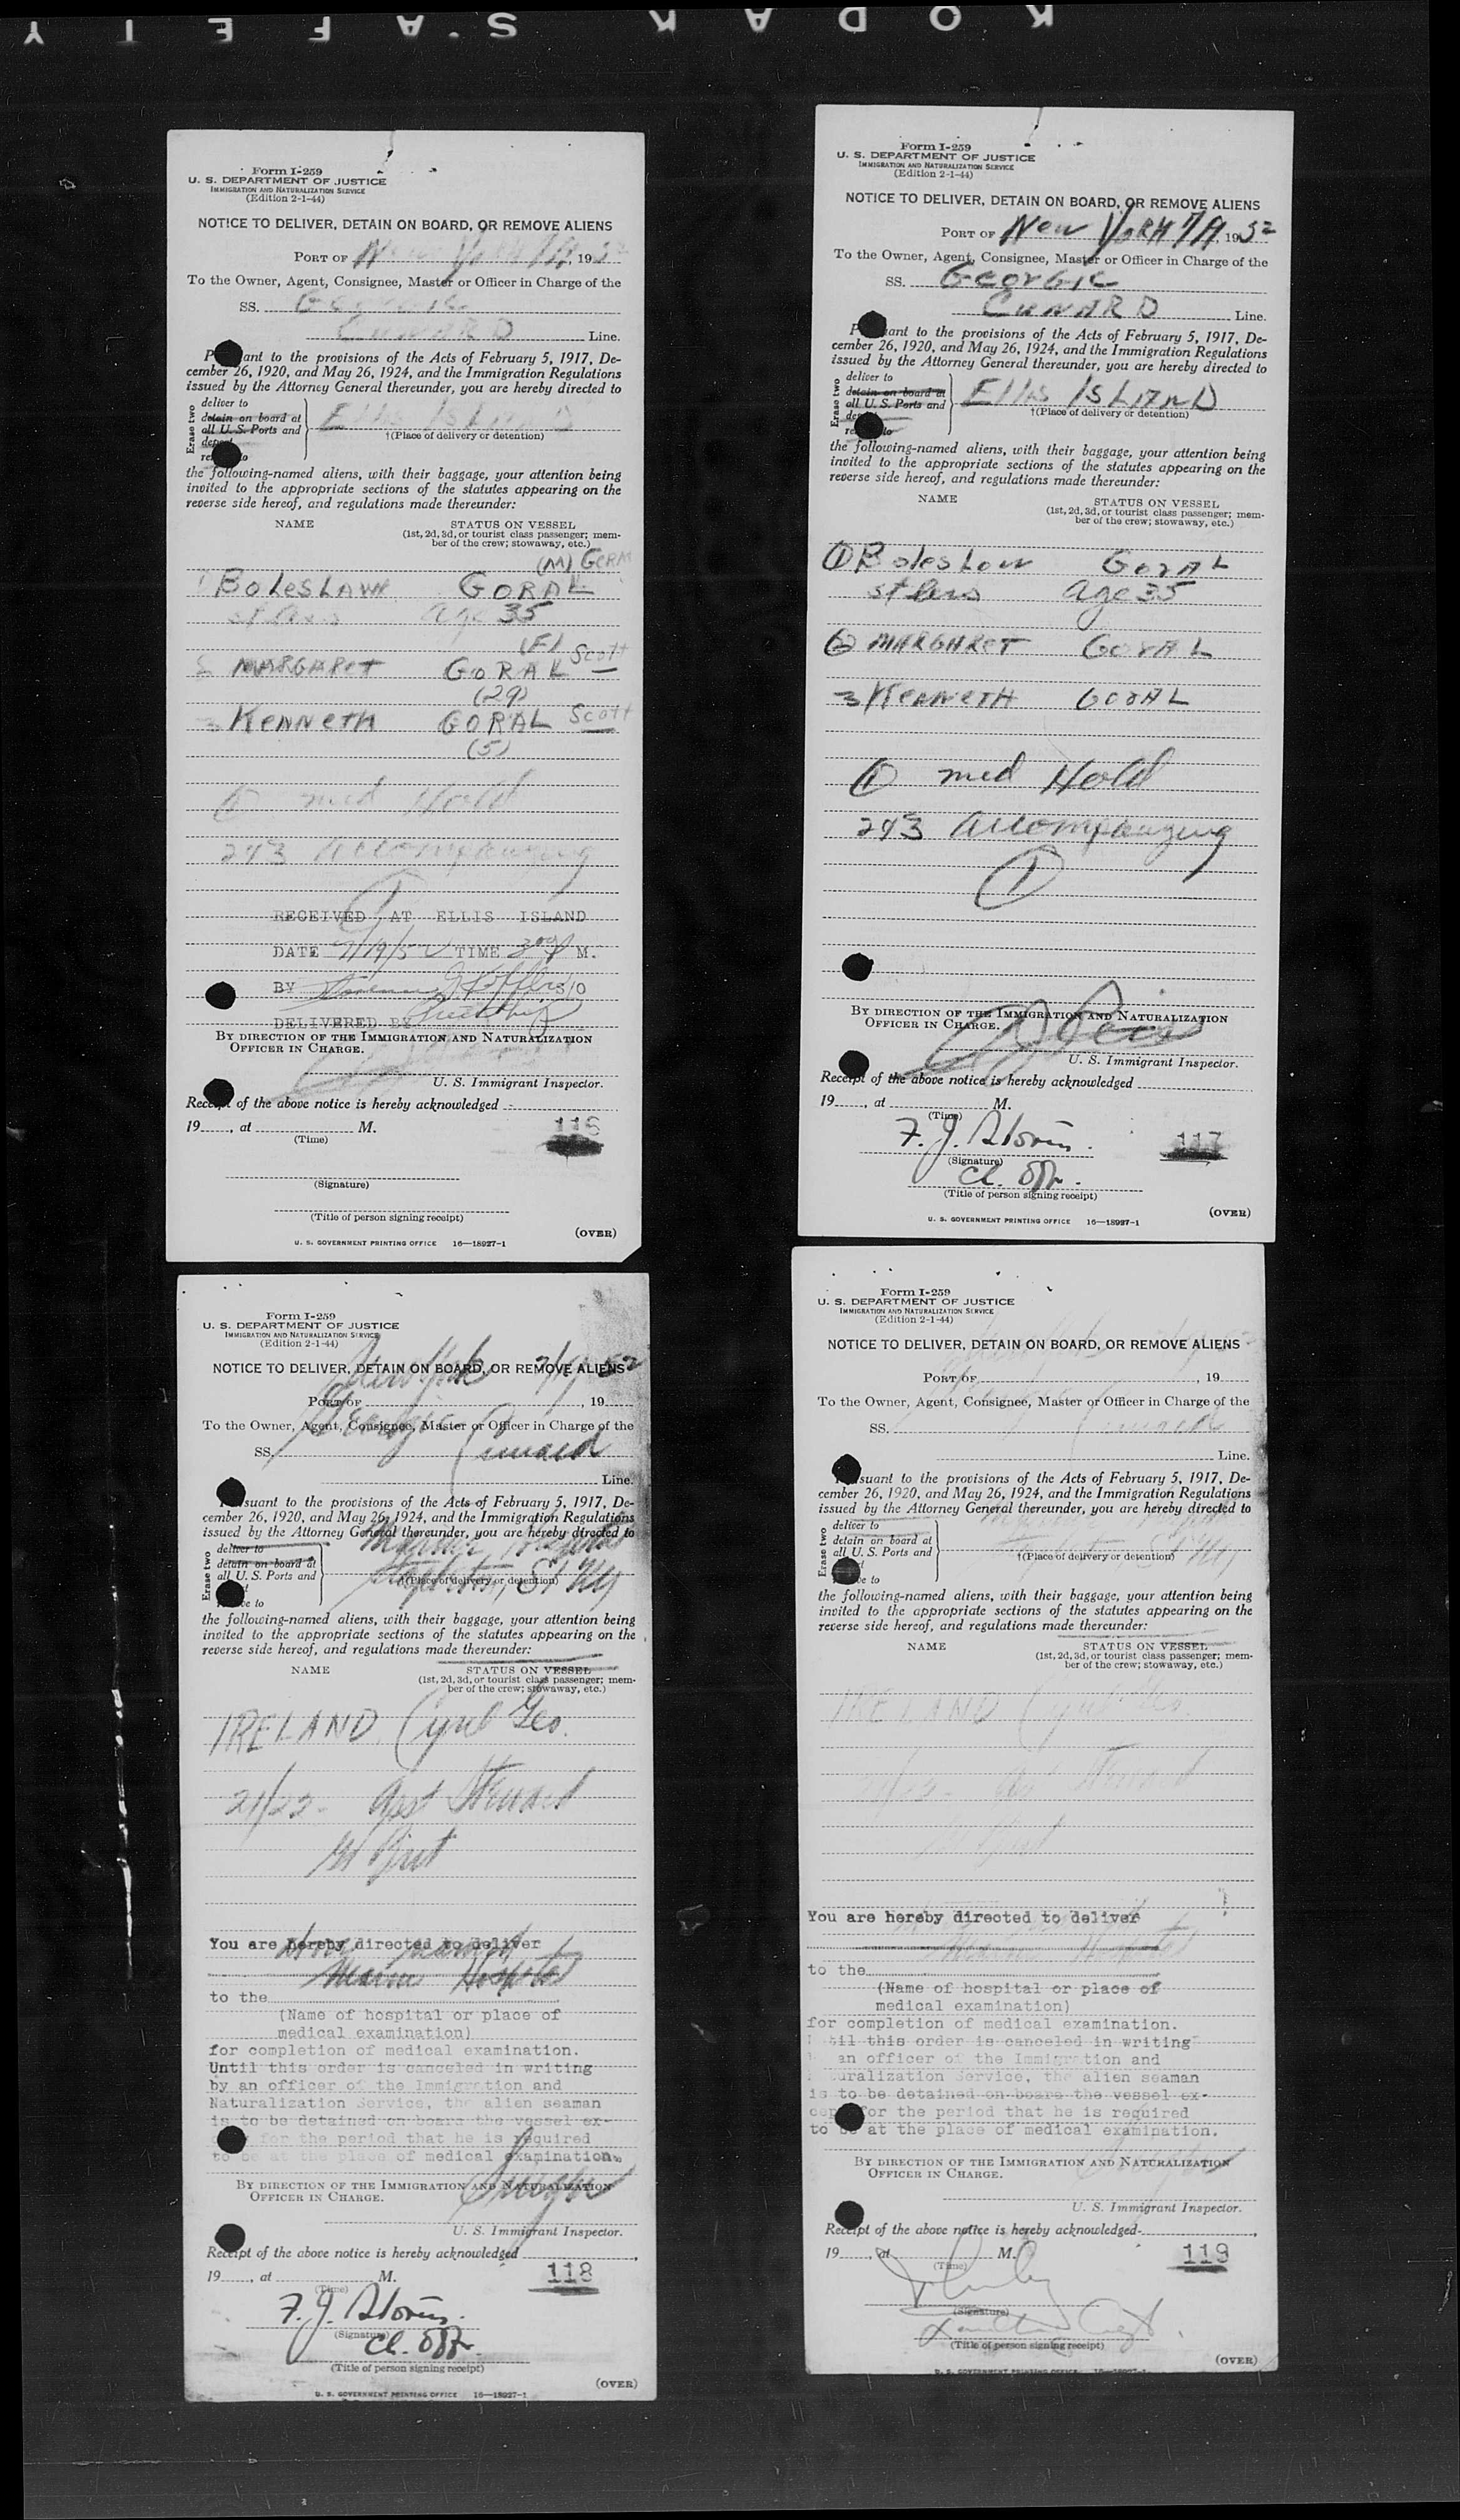 KODAK SAFETY
Form I-259
U. S. DEPARTMENT OF JUSTICE
IMMIGRATION AND NATURALIZATION SERVICE
(Edition 2-1-44)
NOTICE TO DELIVER, DETAIN ON BOARD, OR REMOVE ALIENS
PORT OF New York 7/19, 1952
To the Owner, Agent, Consignee, Master or Officer in Charge of the
SS. Georgic
CUNARD Line.
ant to the provisions of the Acts of February 5, 1917, De-
cember 26, 1920, and May 26, 1924, and the Immigration Regulations
issued by the Attorney General thereunder, you are hereby directed to
Erase two
deliver to
detain on board at
all U. S. Ports and
Ellis ISLAND
†(Place of delivery or detention)
the following-named aliens, with their baggage, your attention being
invited to the appropriate sections of the statutes appearing on the
reverse side hereof, and regulations made thereunder:
NAME STATUS ON VESSEL
(1st, 2d, 3d, or tourist class passenger; mem-
ber of the crew; stowaway, etc.)
(M) GERM
1 BOLESLAW GORAL
age 35
(F)
2 MARGARET GORAL Scott
(29)
3 KENNETH GORAL Scott
(5)
① med Hold
2 & 3 accompanying
①
RECEIVED AT ELLIS ISLAND
DATE 7/19/52 TIME M.
BY
DELIVERED BY
BY DIRECTION OF THE IMMIGRATION AND NATURALIZATION
OFFICER IN CHARGE.
U. S. Immigrant Inspector.
Receipt of the above notice is hereby acknowledged
19 , at M.
(Time)
116
(Signature)
(Title of person signing receipt)
(OVER)
U. S. GOVERNMENT PRINTING OFFICE 16—18927-1
Form I-259
U. S. DEPARTMENT OF JUSTICE
IMMIGRATION AND NATURALIZATION SERVICE
(Edition 2-1-44)
NOTICE TO DELIVER, DETAIN ON BOARD, OR REMOVE ALIENS
PORT OF New York 7/19, 1952
To the Owner, Agent, Consignee, Master or Officer in Charge of the
SS. Georgic
CUNARD Line.
ant to the provisions of the Acts of February 5, 1917, De-
cember 26, 1920, and May 26, 1924, and the Immigration Regulations
issued by the Attorney General thereunder, you are hereby directed to
Erase two
deliver to
detain on board at
all U. S. Ports and
Ellis ISLAND
†(Place of delivery or detention)
the following-named aliens, with their baggage, your attention being
invited to the appropriate sections of the statutes appearing on the
reverse side hereof, and regulations made thereunder:
NAME STATUS ON VESSEL
(1st, 2d, 3d, or tourist class passenger; mem-
ber of the crew; stowaway, etc.)
① Boleslow GORAL
age 35
② MARGARET GORAL
3 KENNETH GORAL
① med Hold
2 & 3 accompanying
①
BY DIRECTION OF THE IMMIGRATION AND NATURALIZATION
OFFICER IN CHARGE.
U. S. Immigrant Inspector.
Receipt of the above notice is hereby acknowledged
19 , at M.
(Time)
F. J.
117
(Signature)
(Title of person signing receipt)
(OVER)
U. S. GOVERNMENT PRINTING OFFICE 16—18927-1
Form I-259
U. S. DEPARTMENT OF JUSTICE
IMMIGRATION AND NATURALIZATION SERVICE
(Edition 2-1-44)
NOTICE TO DELIVER, DETAIN ON BOARD, OR REMOVE ALIENS
New York 7/19 52
PORT OF , 19
To the Owner, Agent, Consignee, Master or Officer in Charge of the
Georgic
SS. Cunard
Line.
suant to the provisions of the Acts of February 5, 1917, De-
cember 26, 1920, and May 26, 1924, and the Immigration Regulations
issued by the Attorney General thereunder, you are hereby directed to
Erase two
deliver to
detain on board at
all U. S. Ports and
ve to
Marine Hospital
Stapleton, SI NY
†(Place of delivery or detention)
the following-named aliens, with their baggage, your attention being
invited to the appropriate sections of the statutes appearing on the
reverse side hereof, and regulations made thereunder:
NAME STATUS ON VESSEL
(1st, 2d, 3d, or tourist class passenger; mem-
ber of the crew; stowaway, etc.)
IRELAND, Cyril Geo.
Asst Steward
Brit
You are hereby directed to deliver
Marine Hospital
to the
(Name of hospital or place of
medical examination)
for completion of medical examination.
Until this order is canceled in writing
by an officer of the Immigration and
Naturalization Service, the alien seaman
is to be detained on board the vessel ex-
for the period that he is required
to be at the place of medical examination.
BY DIRECTION OF THE IMMIGRATION AND NATURALIZATION
OFFICER IN CHARGE.
U. S. Immigrant Inspector.
Receipt of the above notice is hereby acknowledged
19 , at M.
(Time)
118
F. J.
(Signature)
(Title of person signing receipt)
(OVER)
U. S. GOVERNMENT PRINTING OFFICE 16—18927-1
Form I-259
U. S. DEPARTMENT OF JUSTICE
IMMIGRATION AND NATURALIZATION SERVICE
(Edition 2-1-44)
NOTICE TO DELIVER, DETAIN ON BOARD, OR REMOVE ALIENS
PORT OF , 19
To the Owner, Agent, Consignee, Master or Officer in Charge of the
SS. Cunard
Line.
suant to the provisions of the Acts of February 5, 1917, De-
cember 26, 1920, and May 26, 1924, and the Immigration Regulations
issued by the Attorney General thereunder, you are hereby directed to
Erase two
deliver to
detain on board at
all U. S. Ports and
ve to
†(Place of delivery or detention)
the following-named aliens, with their baggage, your attention being
invited to the appropriate sections of the statutes appearing on the
reverse side hereof, and regulations made thereunder:
NAME STATUS ON VESSEL
(1st, 2d, 3d, or tourist class passenger; mem-
ber of the crew; stowaway, etc.)
IRELAND Cyril Geo.
Steward
You are hereby directed to deliver
Marine Hospital
to the
(Name of hospital or place of
medical examination)
for completion of medical examination.
til this order is canceled in writing
an officer of the Immigration and
uralization Service, the alien seaman
is to be detained on board the vessel ex-
cept for the period that he is required
to be at the place of medical examination.
BY DIRECTION OF THE IMMIGRATION AND NATURALIZATION
OFFICER IN CHARGE.
U. S. Immigrant Inspector.
Receipt of the above notice is hereby acknowledged
19 , at M.
(Time)
119
(Signature)
(Title of person signing receipt)
(OVER)
U. S. GOVERNMENT PRINTING OFFICE 16—18927-1